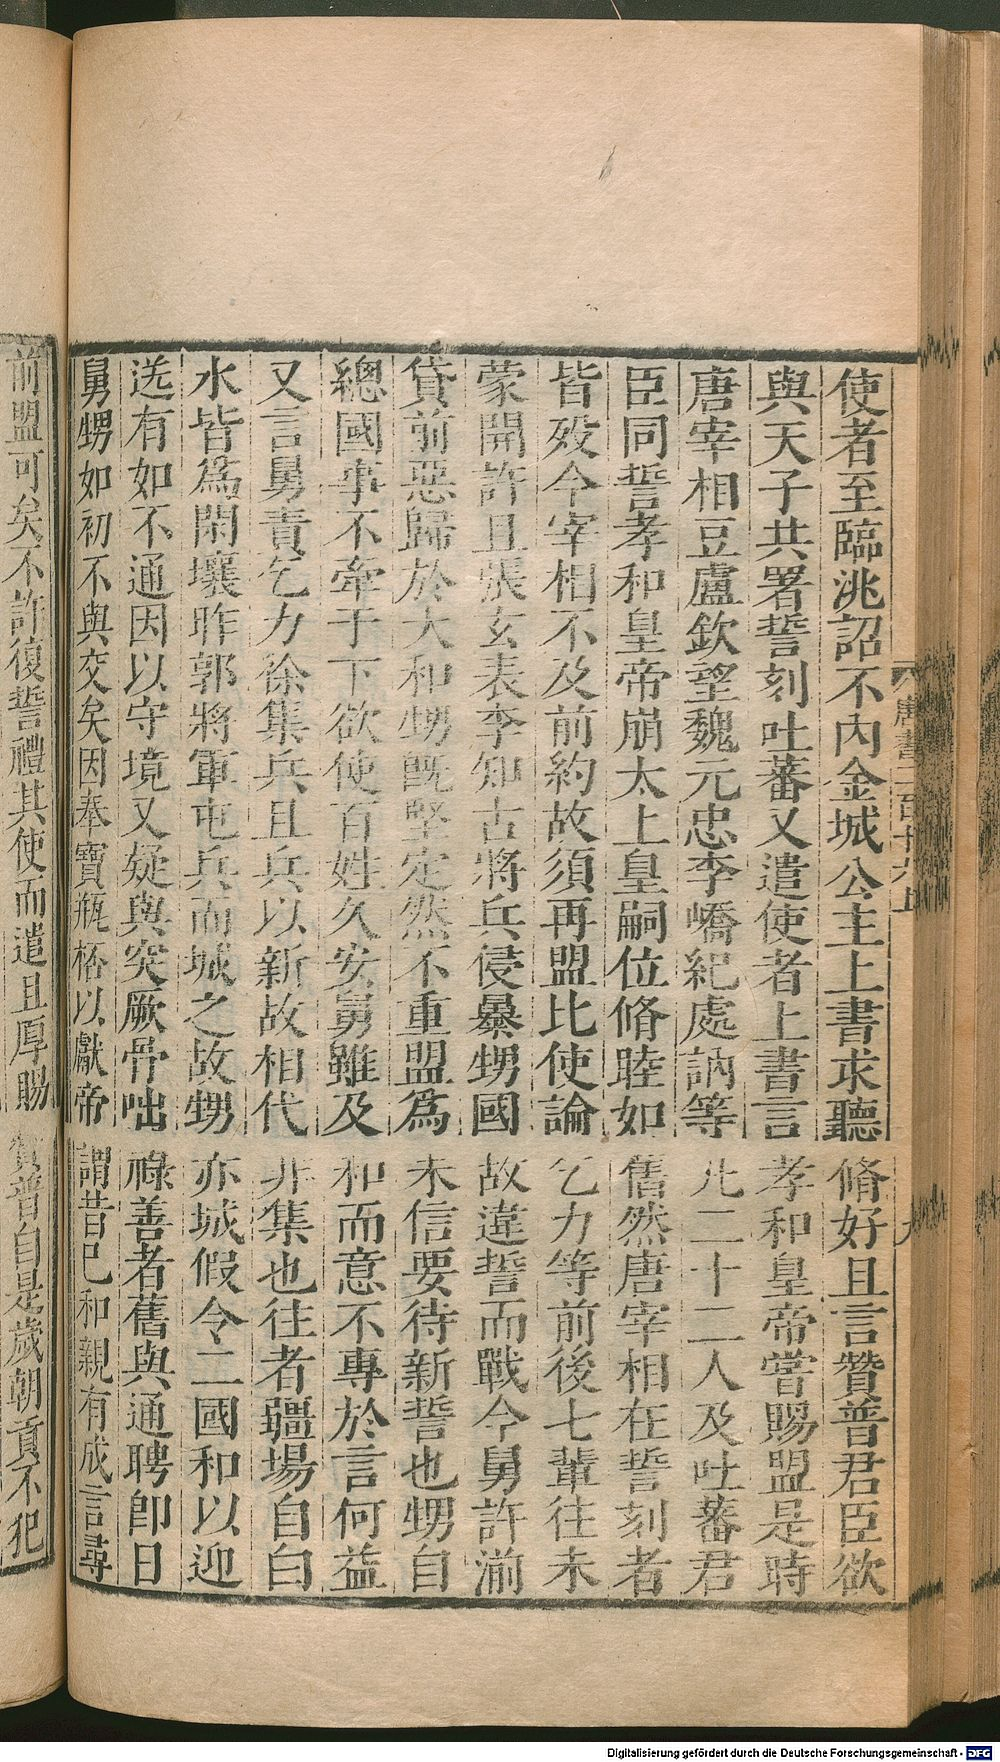 使者至臨洮詔不內金城公主上書求聽脩好且言贊普君臣欲
與天子共署誓刻吐蕃又遣使者上書言孝和皇帝嘗賜盟是時
唐宰相豆盧欽望魏元忠李嶠紀處訥等凡二十二人及吐蕃君
臣同誓孝和皇帝崩太上皇嗣位脩睦如舊然唐宰相在誓刻者
皆歿今宰相不及前約故須再盟比使論乞力等前後七輩往未
蒙開許且張玄表李知古將兵侵暴甥國故違誓而戰今舅許湔
貸前惡歸於大和甥旣堅定然不重盟爲未信要待新誓也甥自
總國事不牽于下欲使百姓久安舅雖及和而意不專於言何益
又言舅責乞力徐集兵且兵以新故相代非集也往者疆場自白
水皆爲閑壤昨郭將軍屯兵而城之故甥亦城假令二國和以迎
送有如不通因以守境又疑與突厥骨咄祿善者舊與通聘卽日
舅甥如初不與交矣因奉寶瓶桮以獻帝謂昔已和親有成言尋
前盟可矣不許復誓禮其使而遣且厚賜贊普自是歲朝貢不犯
唐書二百十六上
九
Digitalisierung gefördert durch die Deutsche Forschungsgemeinschaft - DFG